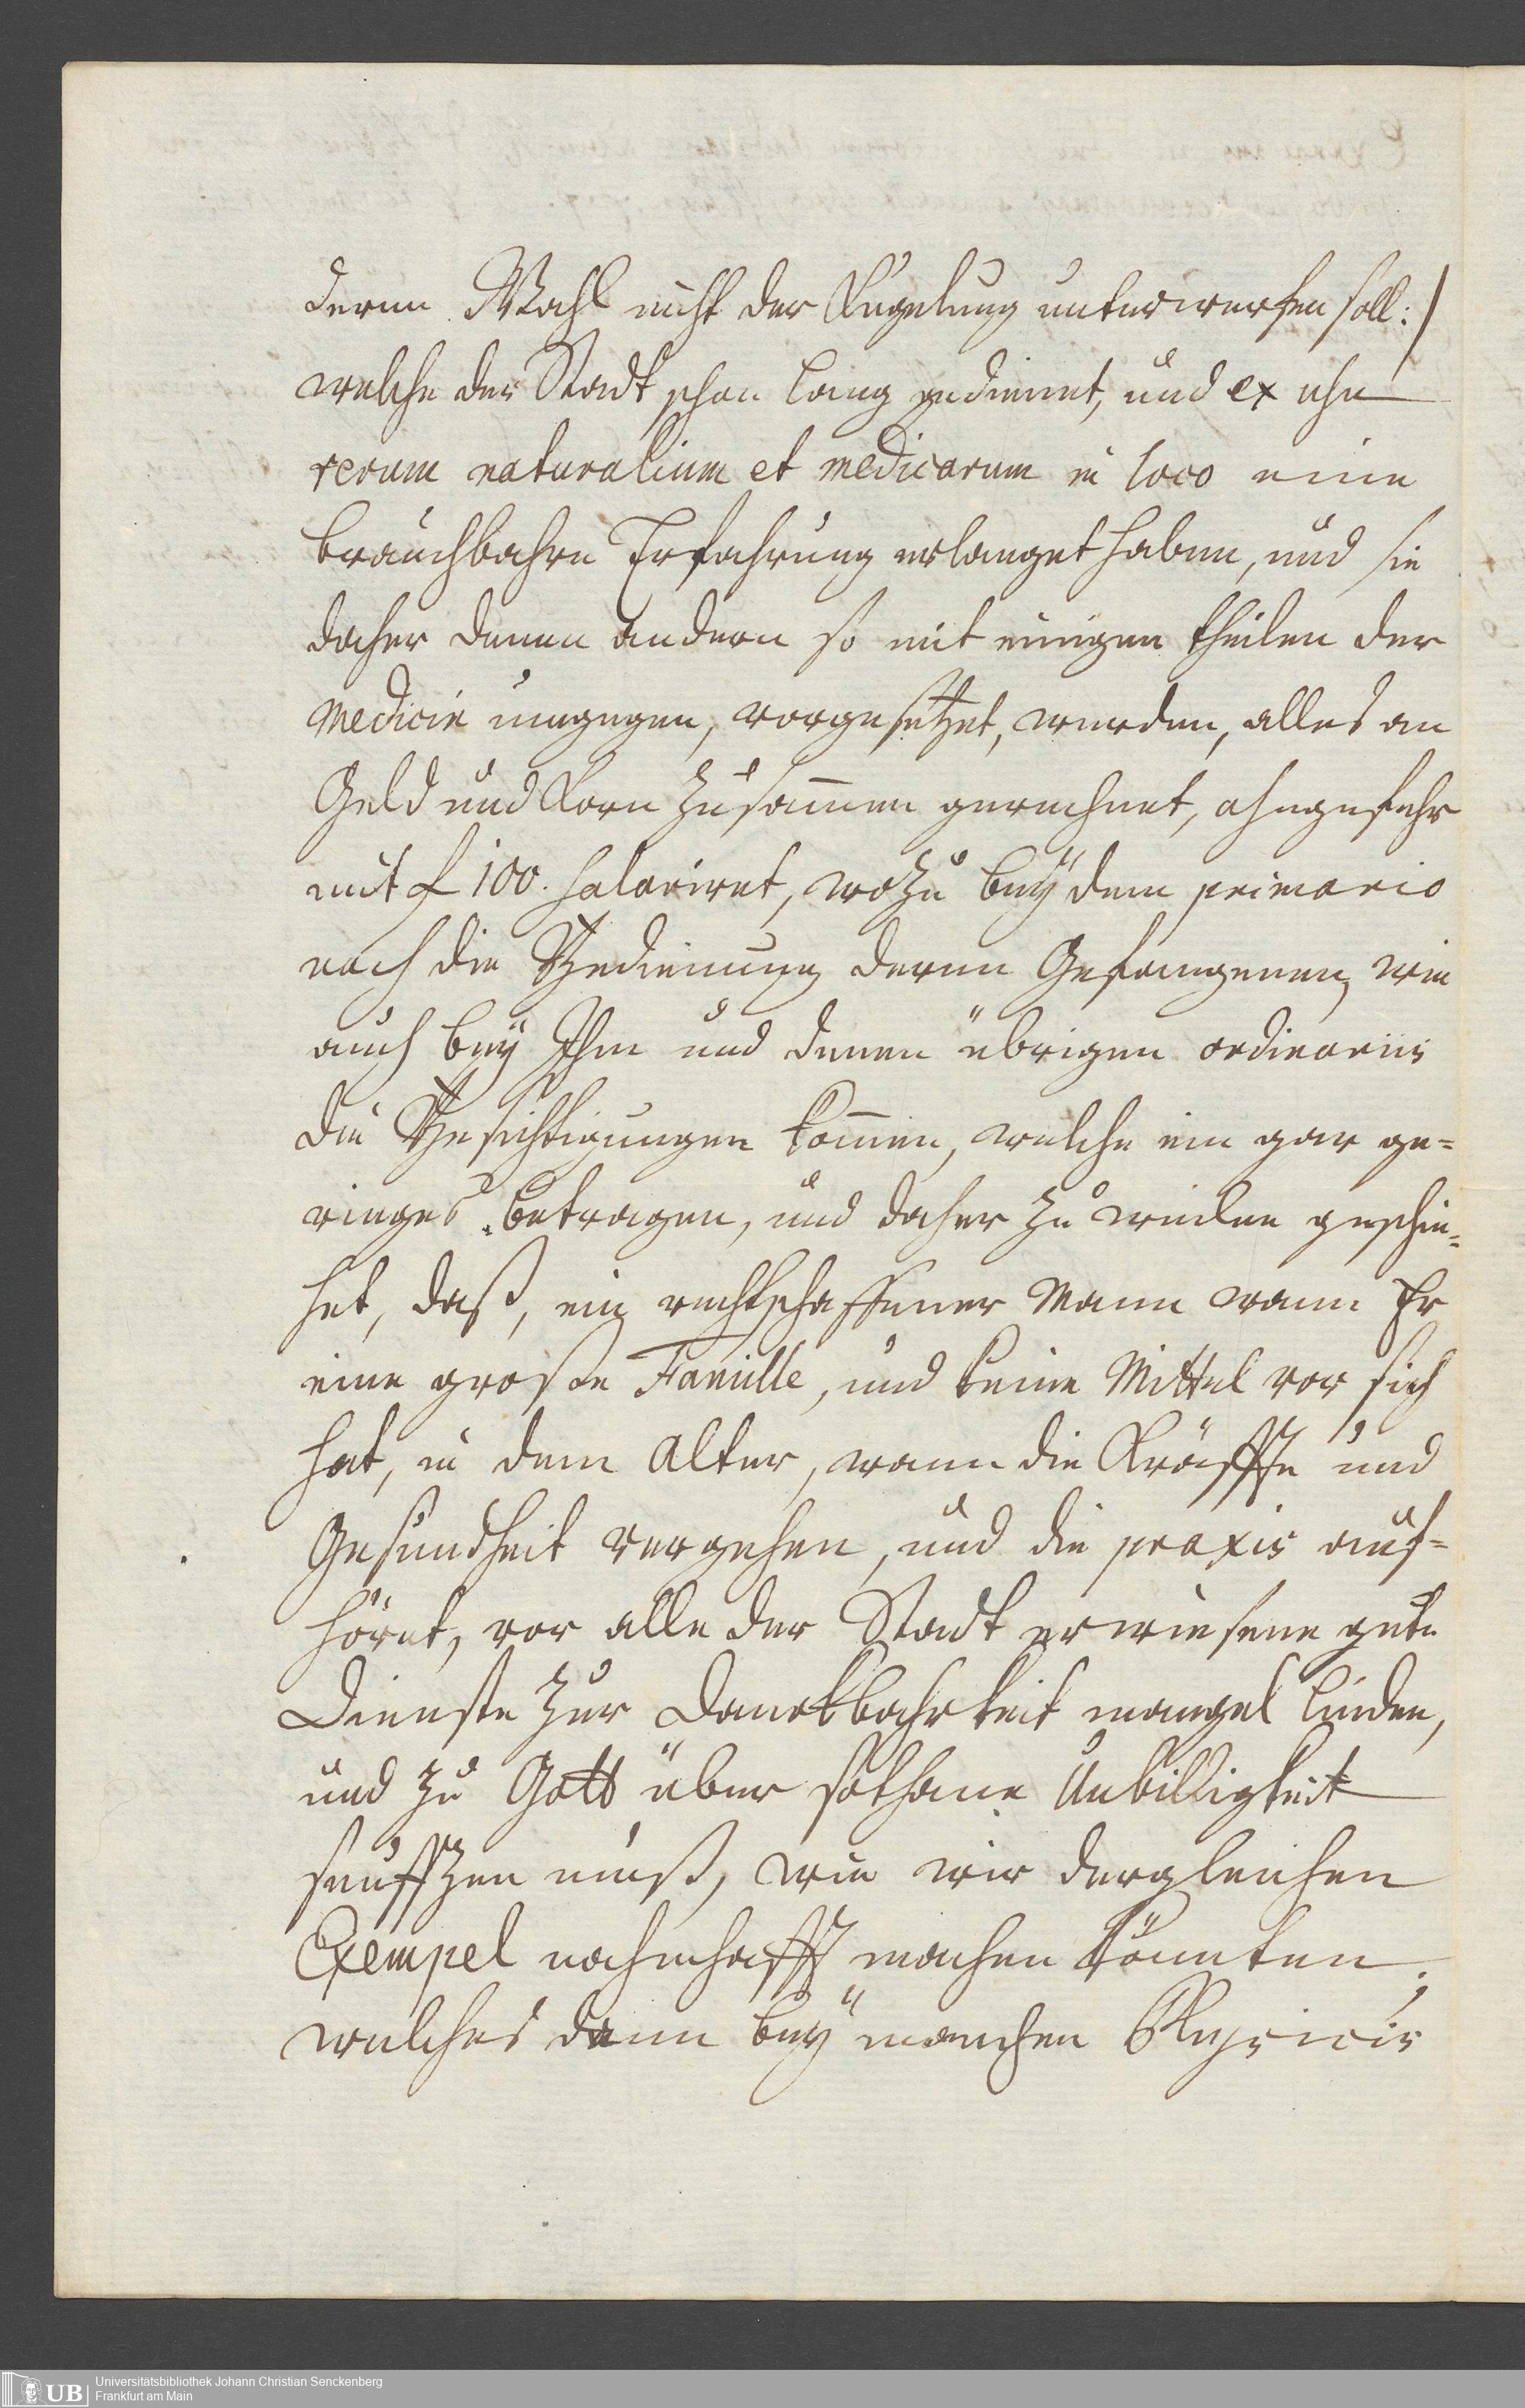 deren Wahl nicht der Kugelung unterwerfen soll:/
welche der Stadt schon lang gedienet, und ex usu
rerum naturalium et medicarum in loco eine
brauchbahre Erfahrung erlanget haben, und sie
daher denen andern so mit einigen theilen der
Medicin umgegen, vorgesetzet, werden, alles an
Geld und Korn zusam̅en gerechnet, ohngefehr
mit f 100. salariret, wozu beÿ dem primario
noch die Bedienung deren Gefangenen, wie
auch beÿ Ihm und denen übrigen ordinariis
die Besichtigungen kom̅en, welche ein gar ge=
ringes betragen, und daher zu weilen geschie=
het, daß, ein rechtschaffener Mann wann Er
eine große Famille, und keine Mittel vor sich
hat, in dem Alter, wann die Kräffte und
Gesundheit vergehen, und die praxis auf=
höret, vor alle der Stadt erwiesene gute
Dienste zur Danckbahrkeit mangel leiden,
und zu Gott über sothane Unbilligkeit
seufftzen muß, wie wir dergleichen
Exempel nahmhafft machen könnten;
welches dann beÿ manchen Physicis
Universitätsbibliothek Johann Christian Senckenberg
Frankfurt am Main
UB